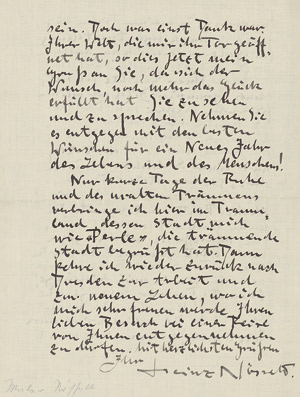 sein. Doch was einst Dank war
Ihrer Welt, die mir ihr Tor geöff
net hat, so dies jetzt mein
Gruß an Sie, da sich der
Wunsch, noch mehr das Glück
erfüllt hat Sie zu sehen
und zu sprechen. Nehmen Sie
es entgegen mit den besten
Wünschen für ein Neues Jahr
des Lebens und des Menschen!
Nur kurze Tage der Ruhe
und des uralten Träumens
verbringe ich hier im Traum
land dessen Stadt mich
wie "Perle", die träumende
Stadt begrüßt hat. Dann
kehre ich wieder zurück nach
Dresden zur Arbeit und
zur neuem Leben, wo ich
mich sehr freuen werde Ihren
lieben Besuch bei einer Reise
von Ihnen entgegennehmen
zu dürfen. Mit herzlichsten Grüßen
Ihr
Heinz